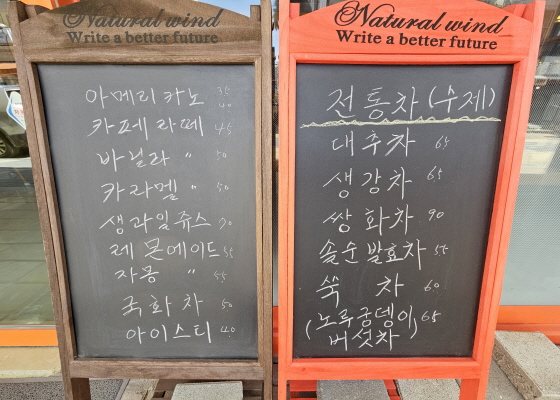 Natural wind
Write a better future
아메리카노 35
40
카페라떼 45
바닐라 〃 50
카라멜 〃 50
생과일쥬스 70
레몬에이드 55
자몽 〃 55
국화차 50
아이스티 40
Natural wind
Write a better future
전통차 (수제)
대추차 65
생강차 65
쌍화차 90
솔순발효차 55
쑥차 60
(노루궁뎅이 65
버섯차)